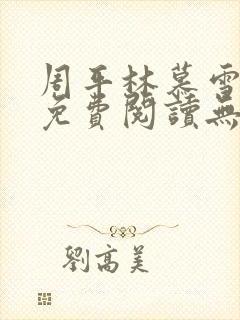 周平林慕雪
免費閱讀無
劉高美